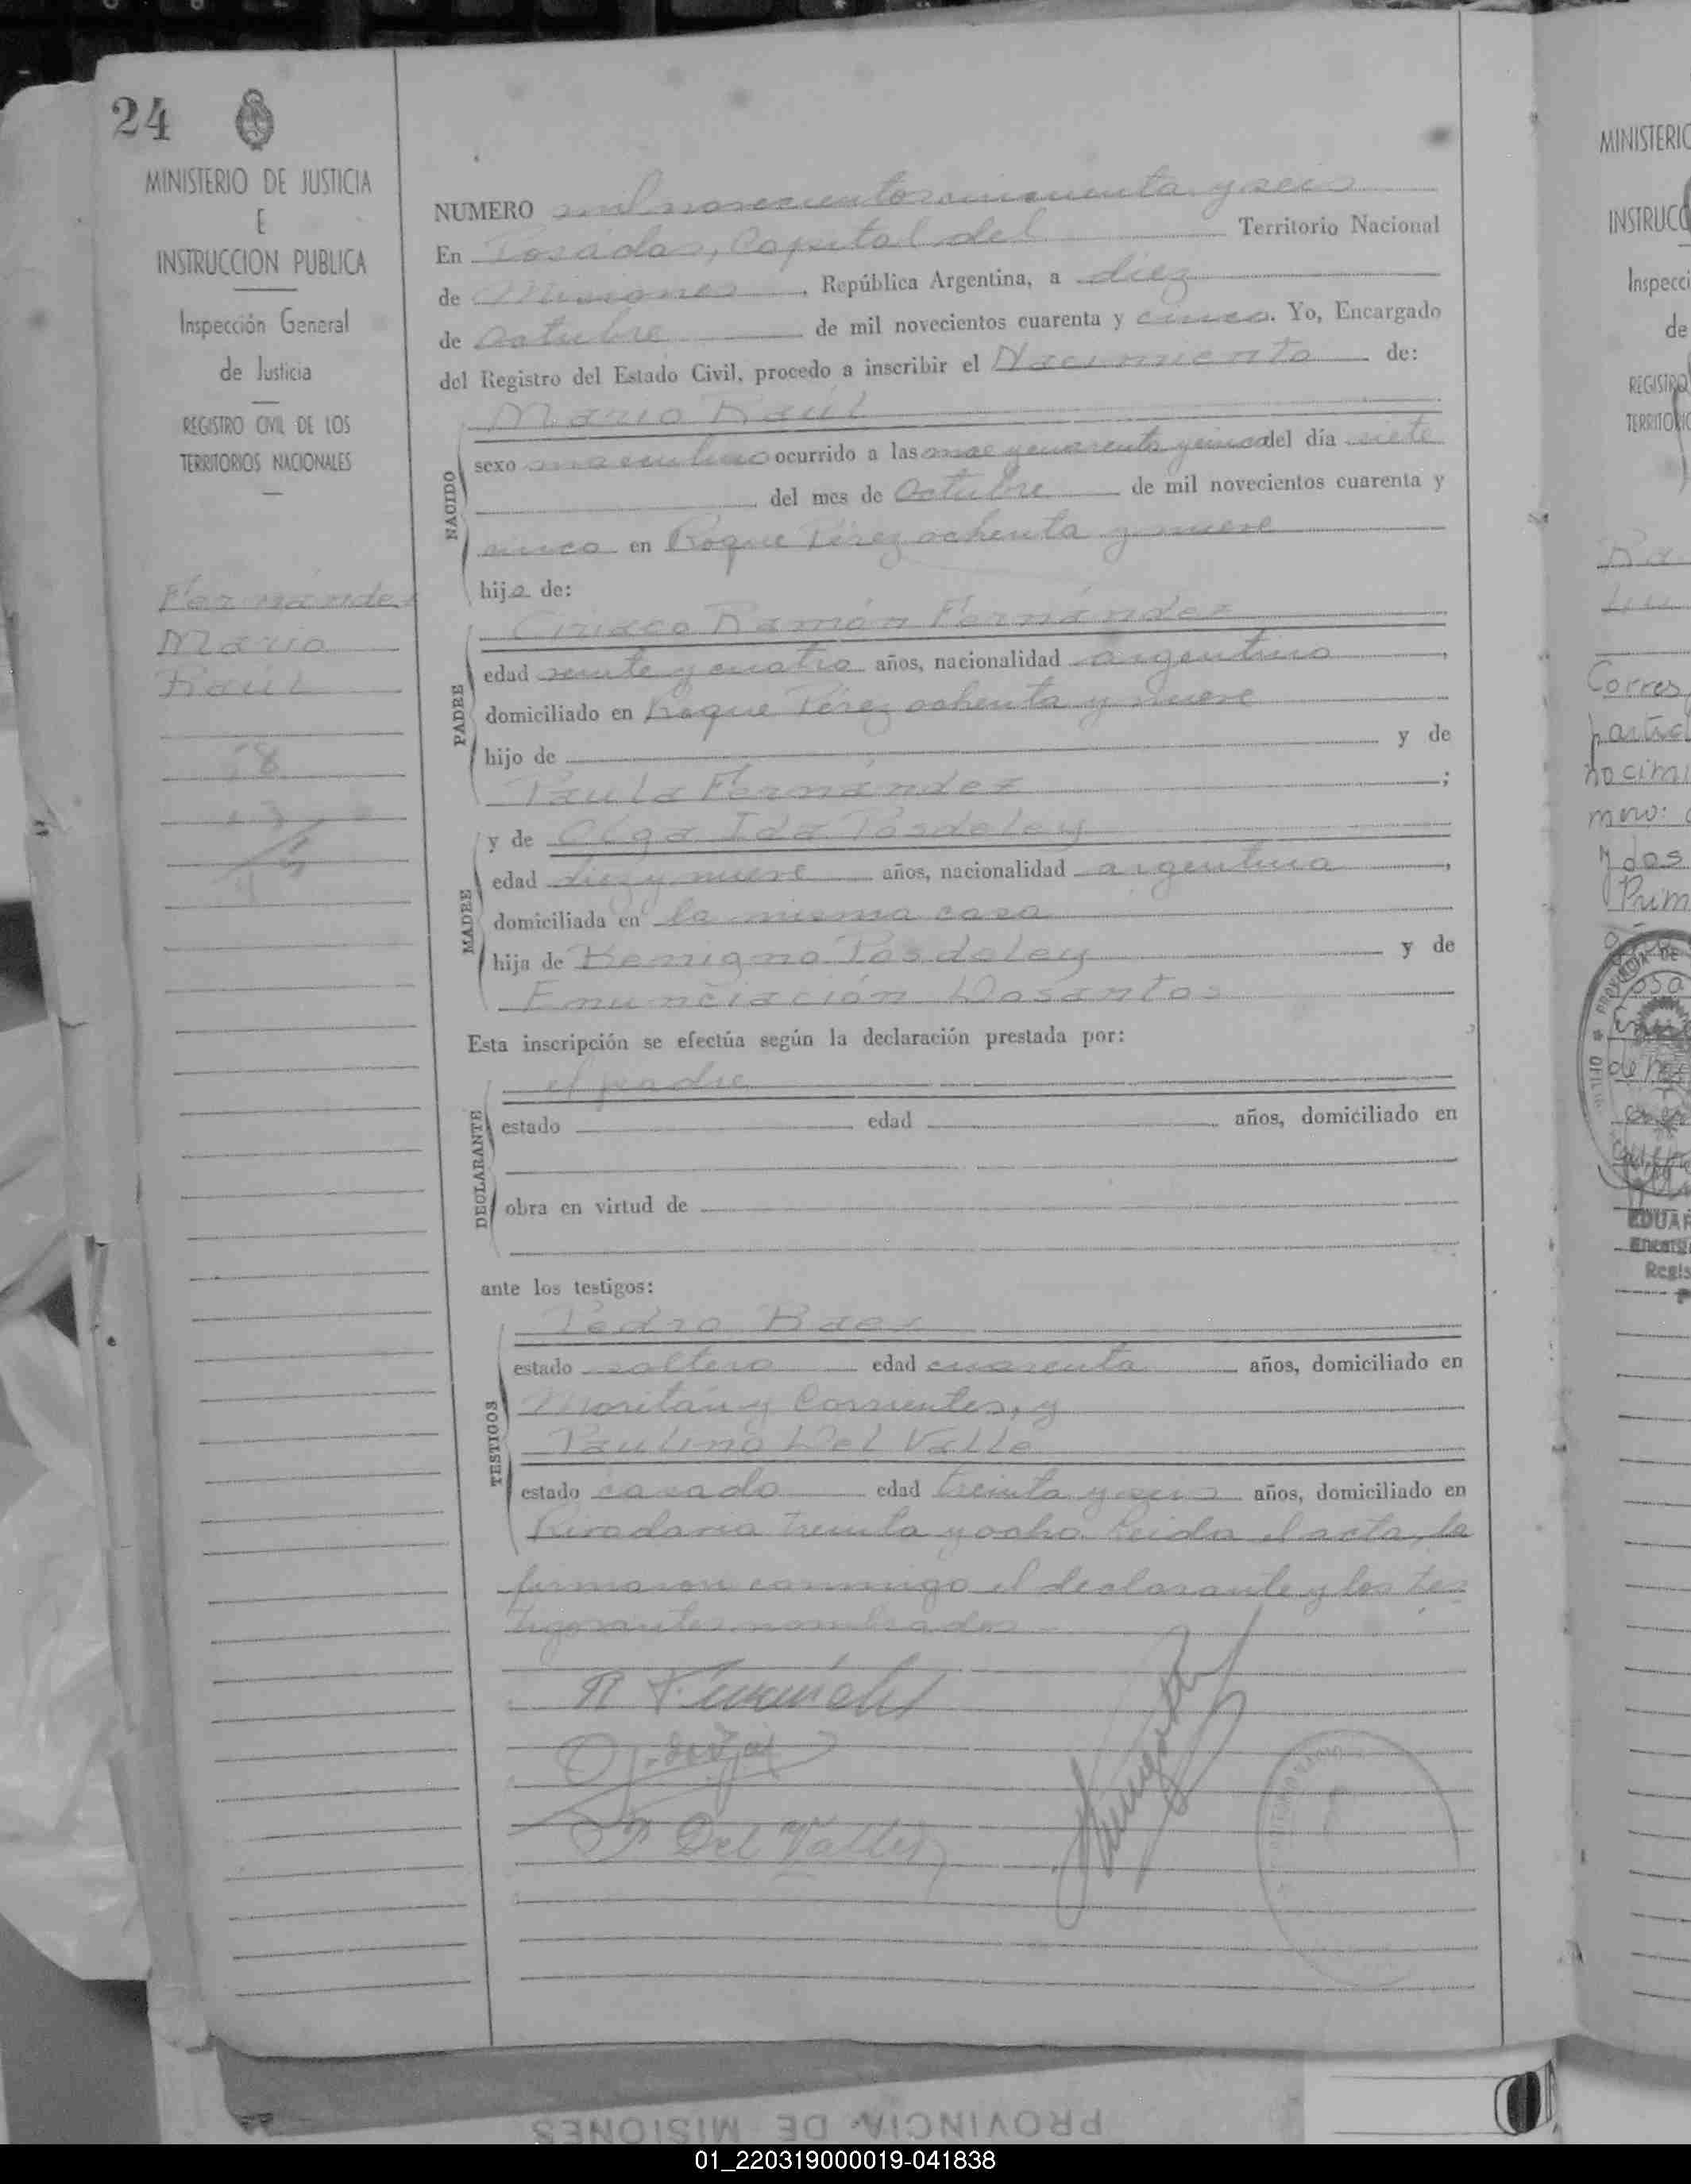 24
MINISTERIO DE JUSTICIA
E
INSTRUCCION PUBLICA
Inspección General
de Justicia
REGISTRO CIVIL DE LOS
TERRITORIOS NACIONALES
Fernández
Mario
Raúl
NUMERO mil novecientos cincuenta y seis
En Posadas, Capital del Territorio Nacional
de Misiones, República Argentina, a diez
de Octubre de mil novecientos cuarenta y cinco. Yo, Encargado
del Registro del Estado Civil, procedo a inscribir el Nacimiento de:
Mario Raúl
NACIDO
sexo masculino ocurrido a las once y cuarenta y cinco del día siete
del mes de Octubre de mil novecientos cuarenta y
cinco en Roque Pérez ochenta y nueve
hijo de:
Ciriaco Ramón Fernández
PADRE
edad veinte y cuatro años, nacionalidad argentino,
domiciliado en Roque Pérez ochenta y nueve
hijo de y de
Paula Fernández;
y de Olga Ida Posdeley
MADRE
edad diez y nueve años, nacionalidad argentina,
domiciliada en la misma casa
hija de Benigno Posdeley y de
Enunciación Dosantos
Esta inscripción se efectúa según la declaración prestada por:
el padre
DECLARANTE
estado edad años, domiciliado en
obra en virtud de
ante los testigos:
Pedro Baez
TESTIGOS
estado soltero edad cuarenta años, domiciliado en
Moritán y Corrientes, y
Paulino Del Valle
estado casado edad treinta y seis años, domiciliado en
Rivadavia treinta y ocho. Leida el acta, la
firmaron conmigo el declarante y los tes
tigos antes nombrados.
R Fernández
P Del Valle
MINISTERIO
INSTRUCC
Inspecci
de
REGISTRO
TERRITORIO
Corres
partid
nacimi
y dos
Prim
EDUAR
Encarg
Regis
PROVINCIA DE MISIONES
01_220319000019-041838